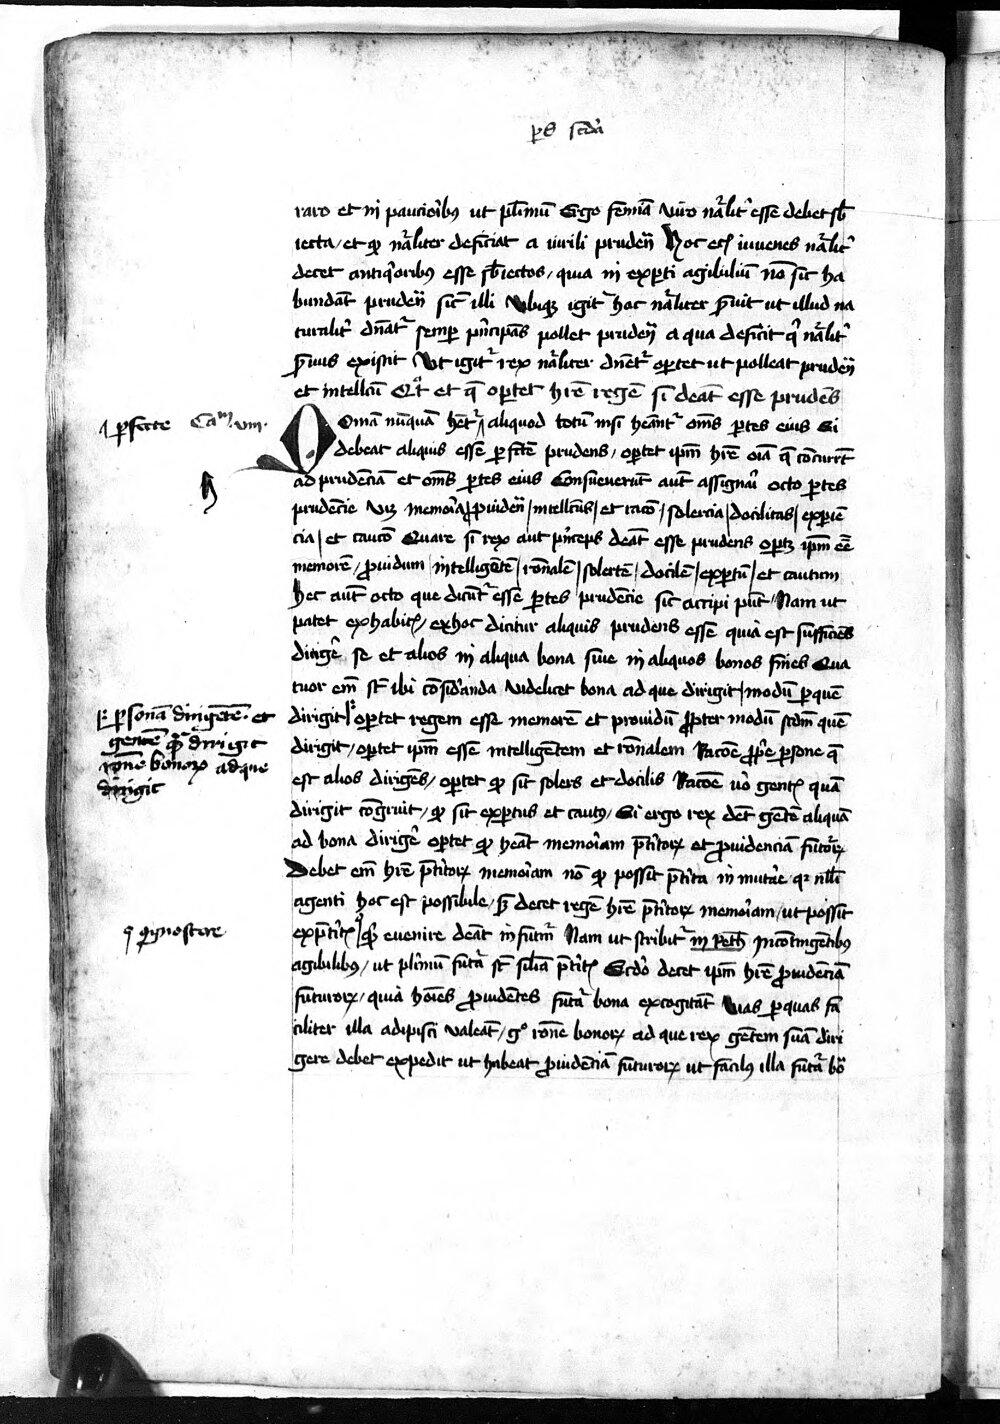 ps scda
raro et in paucioribus ut plimum Ergo femina viro nalit esse debet sb
iecta / et qd naliter deficiat a virili pruden Hoc eciam iuvenes nalit
decet antiquoribus esse sbiectos / quia in experti agibilium non sic ha
bundant pruden sicut illi Ubique igit hoc naliter servit ut illud na
turalit dnatur semper principans pollet pruden a qua deficit quod nalit
servus existit Ut igit rex naliter dnetur oportet ut polleat pruden
et intellectu Quot et que oportet here regem si debeat esse prudens
Ca viii
perfecte
Quoniam nunquam hetur aliquod totum nisi heantur omnes partes eius Si
debeat aliquis esse perfecte prudens / oportet ipm here omnia que concurrunt
ad prudenciam et omnes partes eius Consueverunt autem assignari octo partes
prudencie viz memoria providen / intellectus / et racio / solercia / docilitas / experien
cia / et caucio Quare si rex aut princeps debeat esse prudens oportet ipm esse
memorem / providum intelligentem / ronalem / solertem / docilem / expertum / et cautum
Hec autem octo que dicuntur esse partes prudencie sic accipi possunt / Nam ut
patet ex habitis / ex hoc dicitur aliquis prudens esse quia est sufficiens
dirigere se et alios in aliqua bona sive in aliquos bonos fines Qua
tuor enim sunt ibi consideranda videlicet bona ad que dirigit / modum per quem
dirigit / oportet regem esse memorem et providum propter modum secundum quem
personam dirigentem et
gentem quam dirigit
rone bonorum ad que
dirigit
dirigit / oportet ipm esse intelligentem et ronalem Racione proprie persone que
est alios dirigens / oportet quod sit solers et docilis Racione vero gentis quam
dirigit congruit / quod sit expertus et cautus / Si ergo rex debet gentem aliquam
ad bona dirigere oportet quod heat memoriam preteritorum et providenciam futurorum
Debet enim here preteritorum memoriam non quod possit preterita in mutare quia nulli
agenti hoc est possibile / sed decet regem here preteritorum memoriam / ut possit
cognoscere
ex preteritis / quid evenire debeat in futurum Nam ut scribitur in Reth In contingentibus
agibilibus / ut plimum futura sunt similia preteritis Secundo decet ipm here providenciam
futurorum / quia homines providentes futura bona excogitant vias per quas fa
ciliter illa adipisci valeant / ergo rone bonorum ad que rex gentem suam diri
gere debet expedit ut habeat providenciam futurorum ut facilius illa futura bo